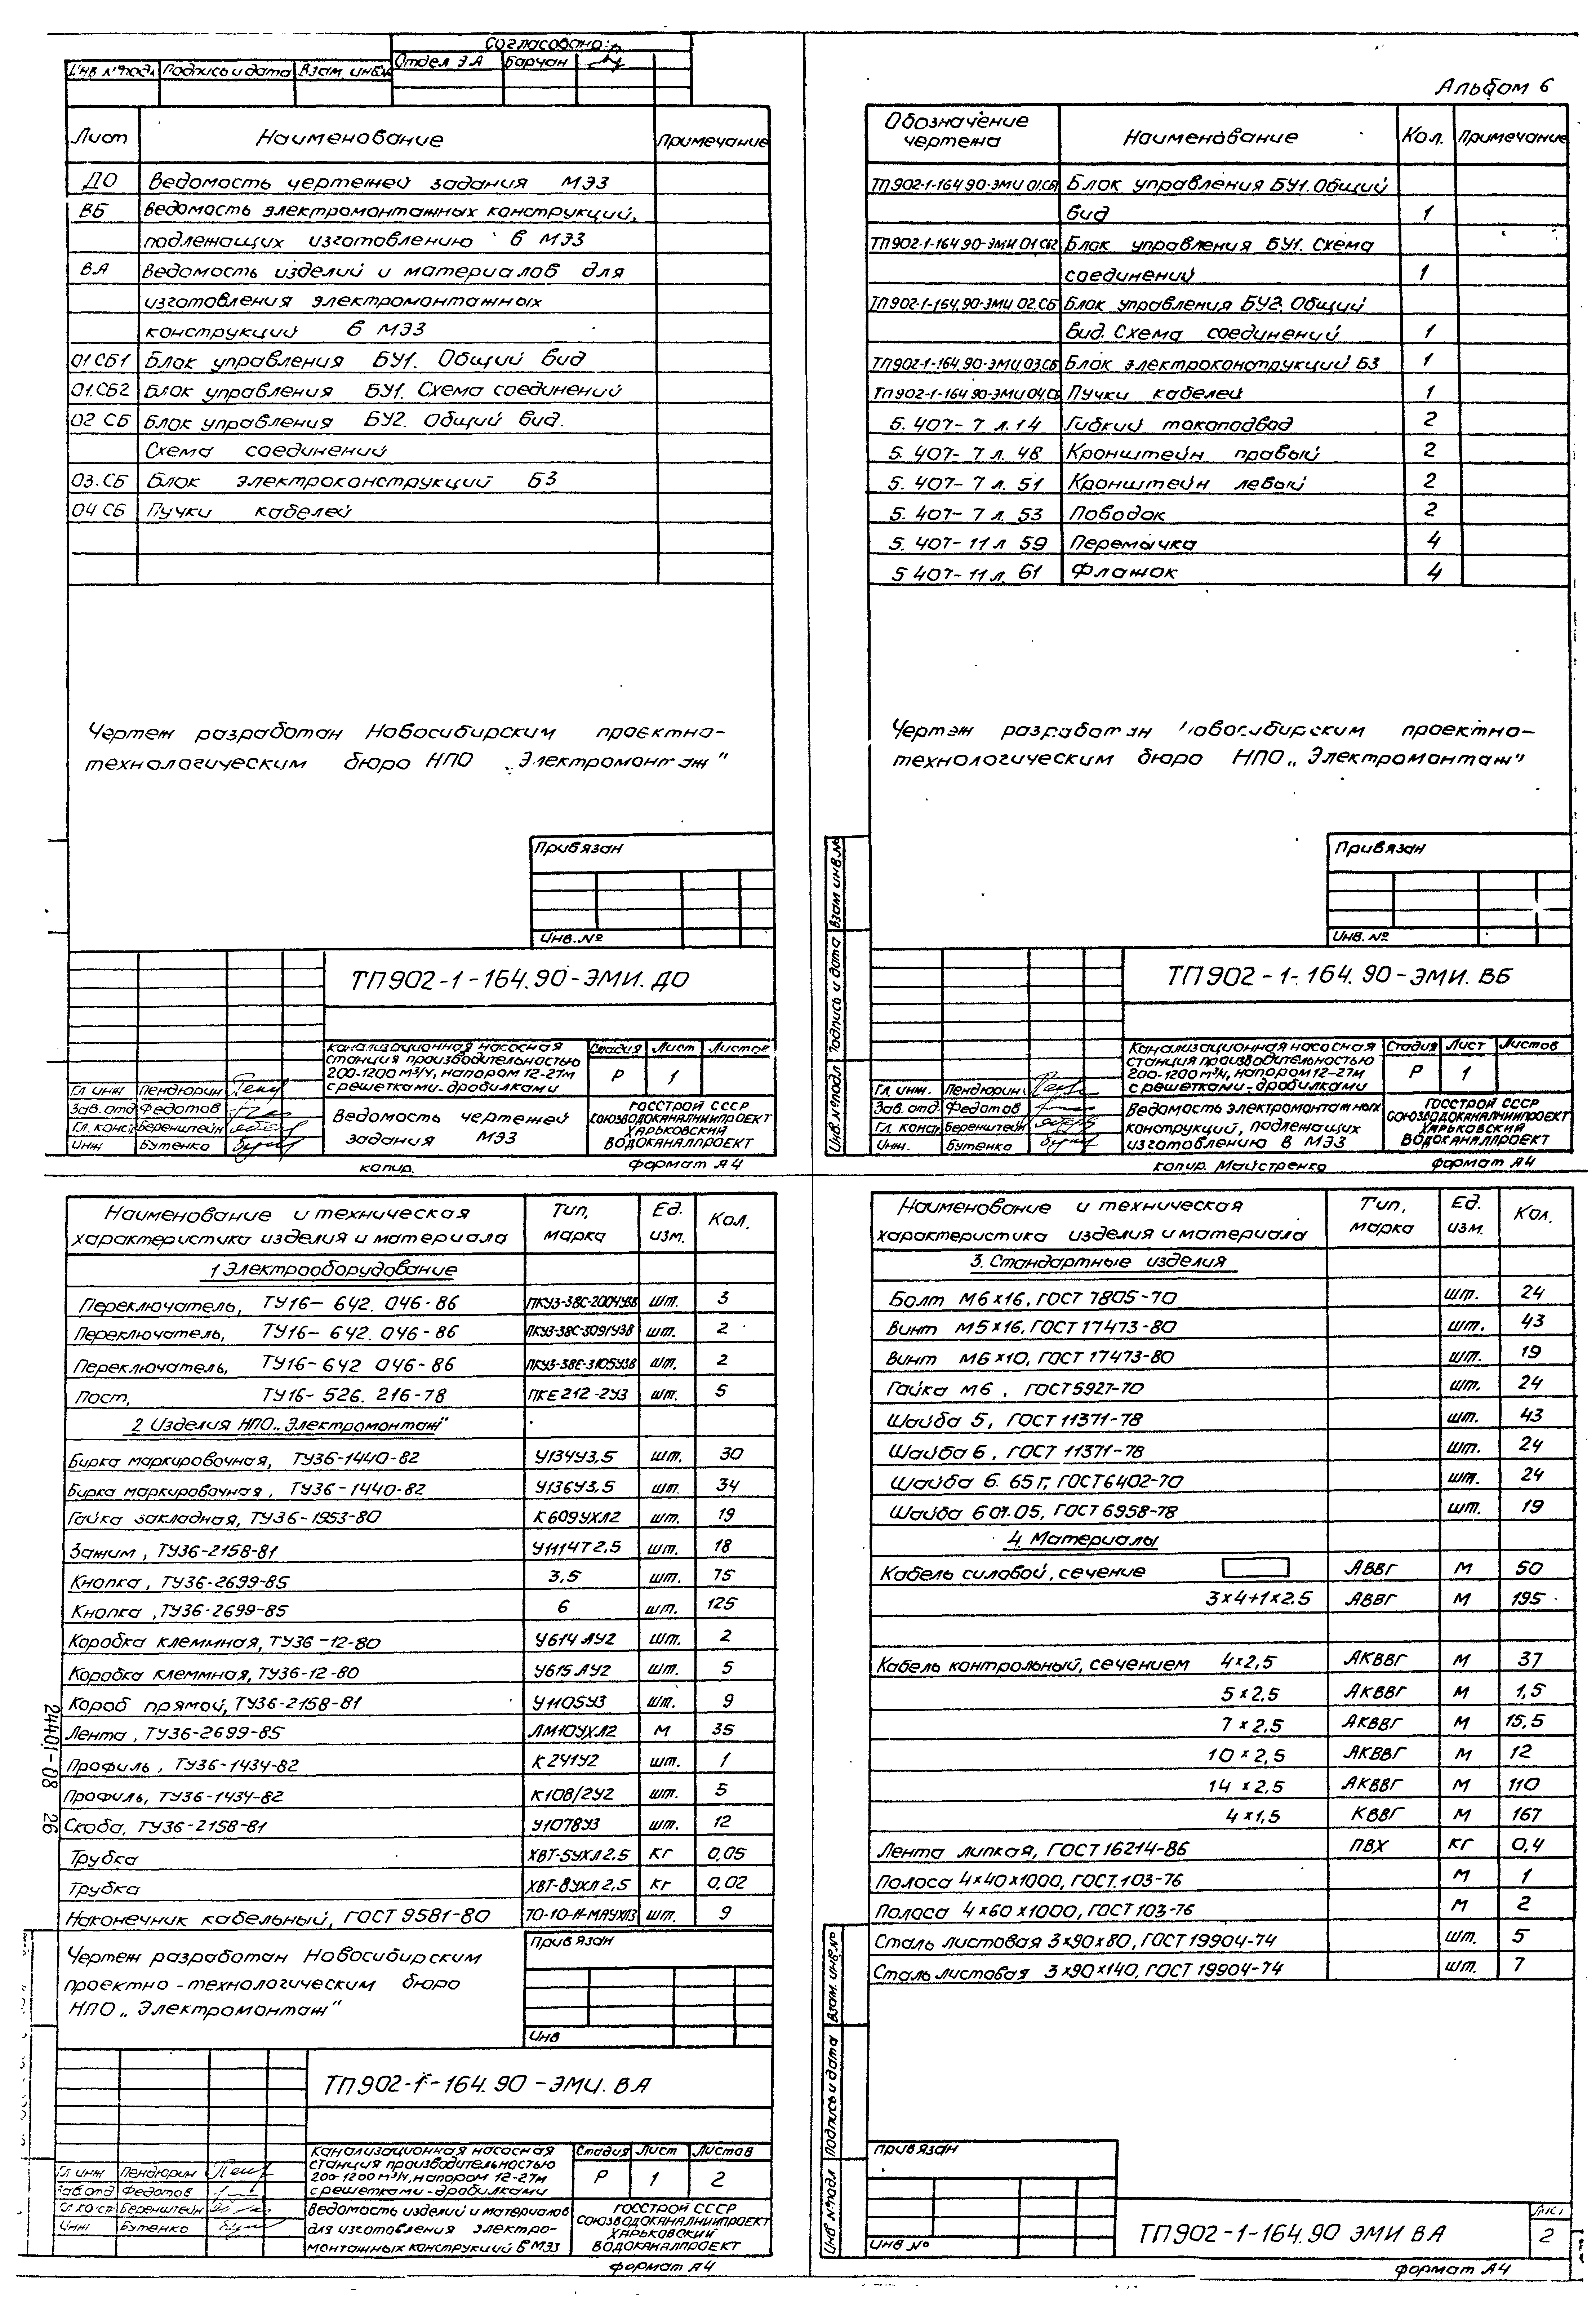 Согласовано:
Инв № подл Подпись и дата Взам. инв.№ Отдел ЭА Барчан
Лист Наименование Примечание
ДО Ведомость чертежей задания МЭЗ
ВБ Ведомость электромонтажных конструкций,
подлежащих изготовлению в МЭЗ
ВА Ведомость изделий и материалов для
изготовления электромонтажных
конструкций в МЭЗ
01 СБ1 Блок управления БУ1. Общий вид
01.СБ2 Блок управления БУ1. Схема соединений
02 СБ Блок управления БУ2. Общий вид.
Схема соединений
03.СБ Блок электроконструкций Б3
04 СБ Пучки кабелей
Чертеж разработан Новосибирским проектно-
технологическим бюро НПО „Электромонтаж"
Привязан
Инв.№
ТП902-1-164.90-ЭМИ.ДО
Канализационная насосная
станция производительностью
200-1200 м³/ч, напором 12-27м
с решетками-дробилками
Стадия Лист Листов
Р 1
Гл инж Пендюрин
Зав. отд Федотов
Гл. конст Беренштейн
Инж Бутенко
Ведомость чертежей
задания МЭЗ
ГОССТРОЙ СССР
СОЮЗВОДОКАНАЛНИИПРОЕКТ
ХАРЬКОВСКИЙ
ВОДОКАНАЛПРОЕКТ
копир. Формат А4
Альбом 6
Обозначение чертежа Наименование Кол. Примечание
ТП902-1-164.90-ЭМИ 01.СБ1 Блок управления БУ1. Общий
вид 1
ТП902-1-164.90-ЭМИ 01 СБ2 Блок управления БУ1. Схема
соединений 1
ТП902-1-164.90-ЭМИ 02.СБ Блок управления БУ2. Общий
вид. Схема соединений 1
ТП902-1-164.90-ЭМИ 03.СБ Блок электроконструкций Б3 1
ТП902-1-164.90-ЭМИ 04.СБ Пучки кабелей 1
5.407-7 л.14 Гибкий токоподвод 2
5.407-7 л.48 Кронштейн правый 2
5.407-7 л.51 Кронштейн левый 2
5.407-7 л.53 Поводок 2
5.407-11 л 59 Перемычка 4
5 407-11 л. 61 Флажок 4
Чертеж разработан Новосибирским проектно-
технологическим бюро НПО „Электромонтаж"
Привязан
Инв.№
Инв.№ подл Подпись и дата Взам инв.№
ТП902-1-164.90-ЭМИ.ВБ
Канализационная насосная
станция производительностью
200-1200 м³/ч, напором 12-27м
с решетками-дробилками
Стадия Лист Листов
Р 1
Гл. инж. Пендюрин
Зав. отд. Федотов
Гл. конст Беренштейн
Инж. Бутенко
Ведомость электромонтажных
конструкций, подлежащих
изготовлению в МЭЗ
ГОССТРОЙ СССР
СОЮЗВОДОКАНАЛНИИПРОЕКТ
ХАРЬКОВСКИЙ
ВОДОКАНАЛПРОЕКТ
копир. Майстренко Формат А4
Наименование и техническая характеристика изделия и материала Тип, марка Ед. изм. Кол.
1 Электрооборудование
Переключатель, ТУ16-642.046-86 ПКУ3-38С-2004У3В шт. 3
Переключатель, ТУ16-642.046-86 ПКУ3-38С-3091У3В шт. 2
Переключатель, ТУ16-642 046-86 ПКУ3-38Е-3105У3В шт. 2
Пост, ТУ16-526.216-78 ПКЕ212-2У3 шт. 5
2 Изделия НПО „Электромонтаж"
Бирка маркировочная, ТУ36-1440-82 У134У3,5 шт. 30
Бирка маркировочная, ТУ36-1440-82 У136У3,5 шт. 34
Гайка закладная, ТУ36-1953-80 К609УХЛ2 шт. 19
Зажим, ТУ36-2158-81 У1114Т2,5 шт. 18
Кнопка, ТУ36-2699-85 3,5 шт. 75
Кнопка, ТУ36-2699-85 6 шт. 125
Коробка клеммная, ТУ36-12-80 У614 АУ2 шт. 2
Коробка клеммная, ТУ36-12-80 У615 АУ2 шт. 5
Короб прямой, ТУ36-2158-81 У1105У3 шт. 9
Лента, ТУ36-2699-85 ЛМ10УХЛ2 м 35
Профиль, ТУ36-1434-82 К241У2 шт. 1
Профиль, ТУ36-1434-82 К108/2У2 шт. 5
Скоба, ТУ36-2158-81 У1078У3 шт. 12
Трубка ХВТ-5УХЛ2.5 кг 0,05
Трубка ХВТ-8УХЛ2,5 кг 0,02
Наконечник кабельный, ГОСТ 9581-80 шт. 9
24401-08 26
Чертеж разработан Новосибирским
проектно-технологическим бюро
НПО „Электромонтаж"
Привязан
Инв
ТП902-1-164.90-ЭМИ.ВА
Канализационная насосная
станция производительностью
200-1200 м³/ч, напором 12-27м
с решетками-дробилками
Стадия Лист Листов
Р 1 2
Гл инж Пендюрин
Зав.отд Федотов
Беренштейн
Инж Бутенко
Ведомость изделий и материалов
для изготовления электро-
монтажных конструкций в МЭЗ
ГОССТРОЙ СССР
СОЮЗВОДОКАНАЛНИИПРОЕКТ
ХАРЬКОВСКИЙ
ВОДОКАНАЛПРОЕКТ
Формат А4
Наименование и техническая характеристика изделия и материала Тип, марка Ед. изм. Кол.
3. Стандартные изделия
Болт М6×16, ГОСТ 7805-70 шт. 24
Винт М5×16, ГОСТ 17473-80 шт. 43
Винт М6×10, ГОСТ 17473-80 шт. 19
Гайка М6, ГОСТ5927-70 шт. 24
Шайба 5, ГОСТ 11371-78 шт. 43
Шайба 6, ГОСТ 11371-78 шт. 24
Шайба 6. 65Г, ГОСТ6402-70 шт. 24
Шайба 6 01.05, ГОСТ6958-78 шт. 19
4. Материалы
Кабель силовой, сечение АВВГ м 50
3×4+1×2.5 АВВГ м 195
Кабель контрольный, сечением 4×2,5 АКВВГ м 37
5×2.5 АКВВГ м 1,5
7×2.5 АКВВГ м 15.5
10×2,5 АКВВГ м 12
14×2.5 АКВВГ м 110
4×1,5 КВВГ м 167
Лента липкая, ГОСТ16214-86 ПВХ кг 0,4
Полоса 4×40×1000, ГОСТ.103-76 м 1
Полоса 4×60×1000, ГОСТ103-76 м 2
Сталь листовая 3×90×80, ГОСТ19904-74 шт. 5
Сталь листовая 3×90×140, ГОСТ 19904-74 шт. 7
Инв №подл Подпись и дата Взам. инв.№
Привязан
Инв №
ТП902-1-164.90 ЭМИ ВА
Лист
2
Формат А4